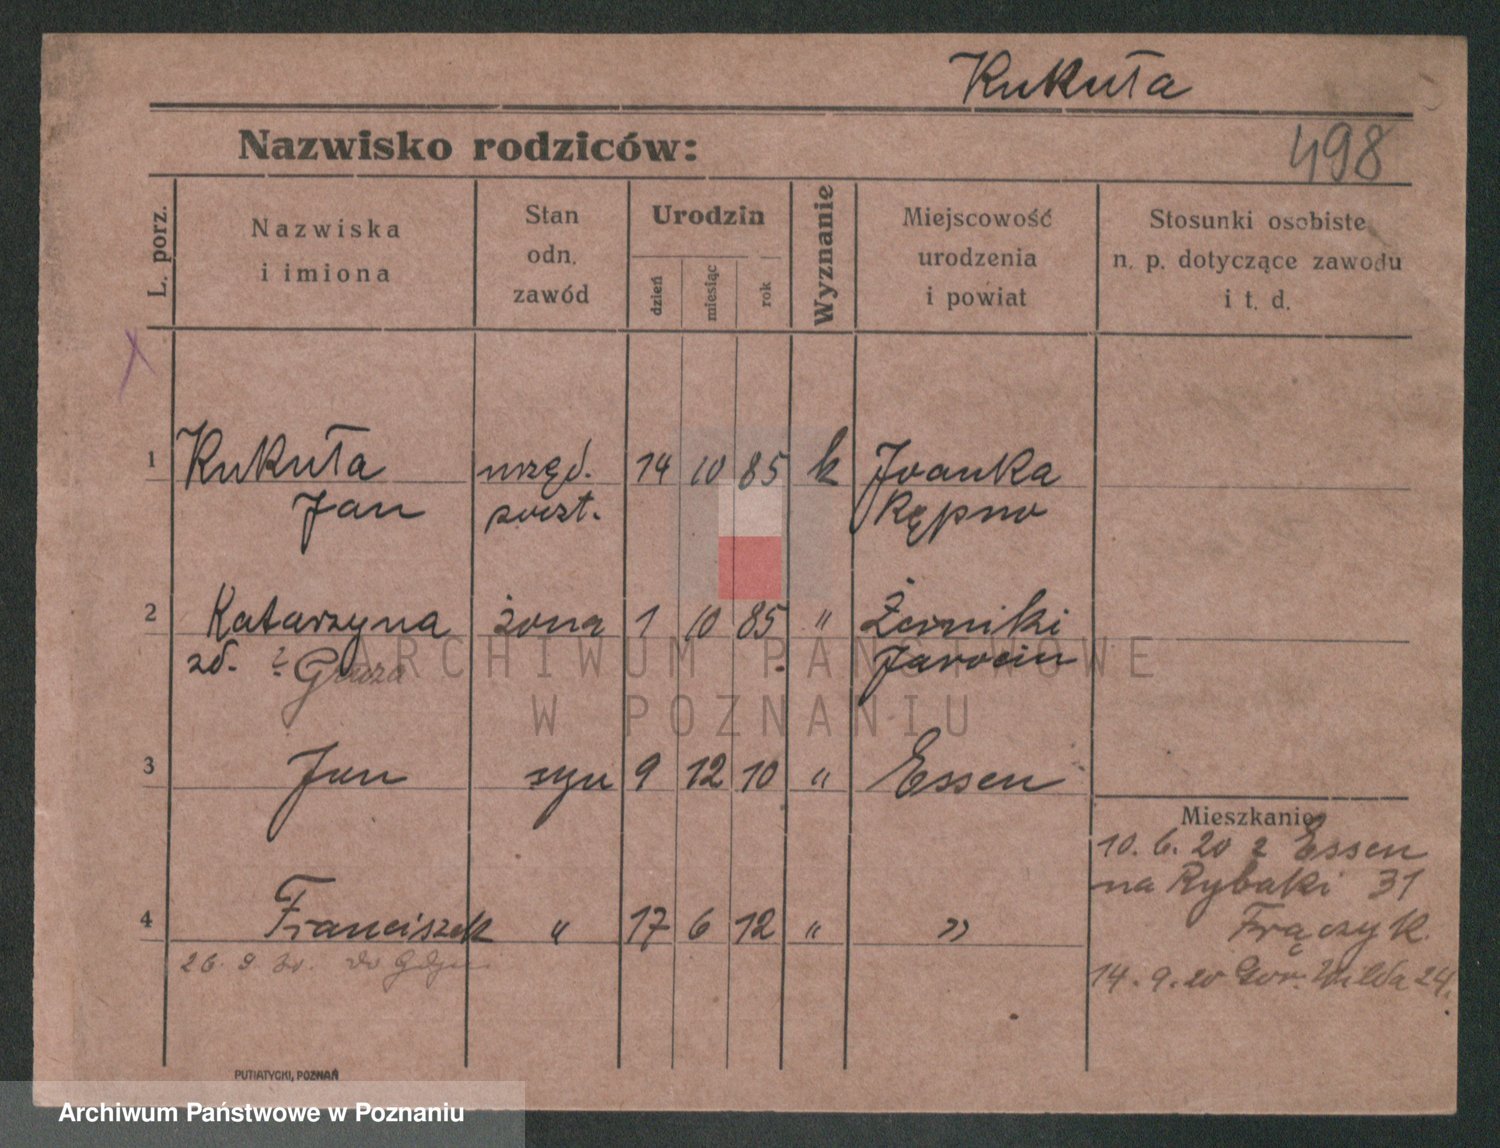 Kukuła
Nazwisko rodziców:
498
L. porz.
Nazwiska
i imiona
Stan
odn.
zawód
Urodzin
dzień
miesiąc
rok
Wyznanie
Miejscowość
urodzenia
i powiat
Stosunki osobiste
n. p. dotyczące zawodu
i t. d.
1 Kukuła urzęd. 14 10 85 k Iwanka
Jan poczt. Kępno
2 Katarzyna żona 1 10 85 " Żerniki
zd. Jarocin
ARCHIWUM PAŃSTWOWE
W POZNANIU
3 Jan syn 9 12 10 " Essen
Mieszkanie
10. 6. 20 z Essen
na Rybaki 31
4 Franciszek " 17 6 12 " "
Frączyk.
26. 9. 30. do Gdyni
14. 9. 20 Gór. Wilda 24.
PUTIATYCKI, POZNAŃ
Archiwum Państwowe w Poznaniu